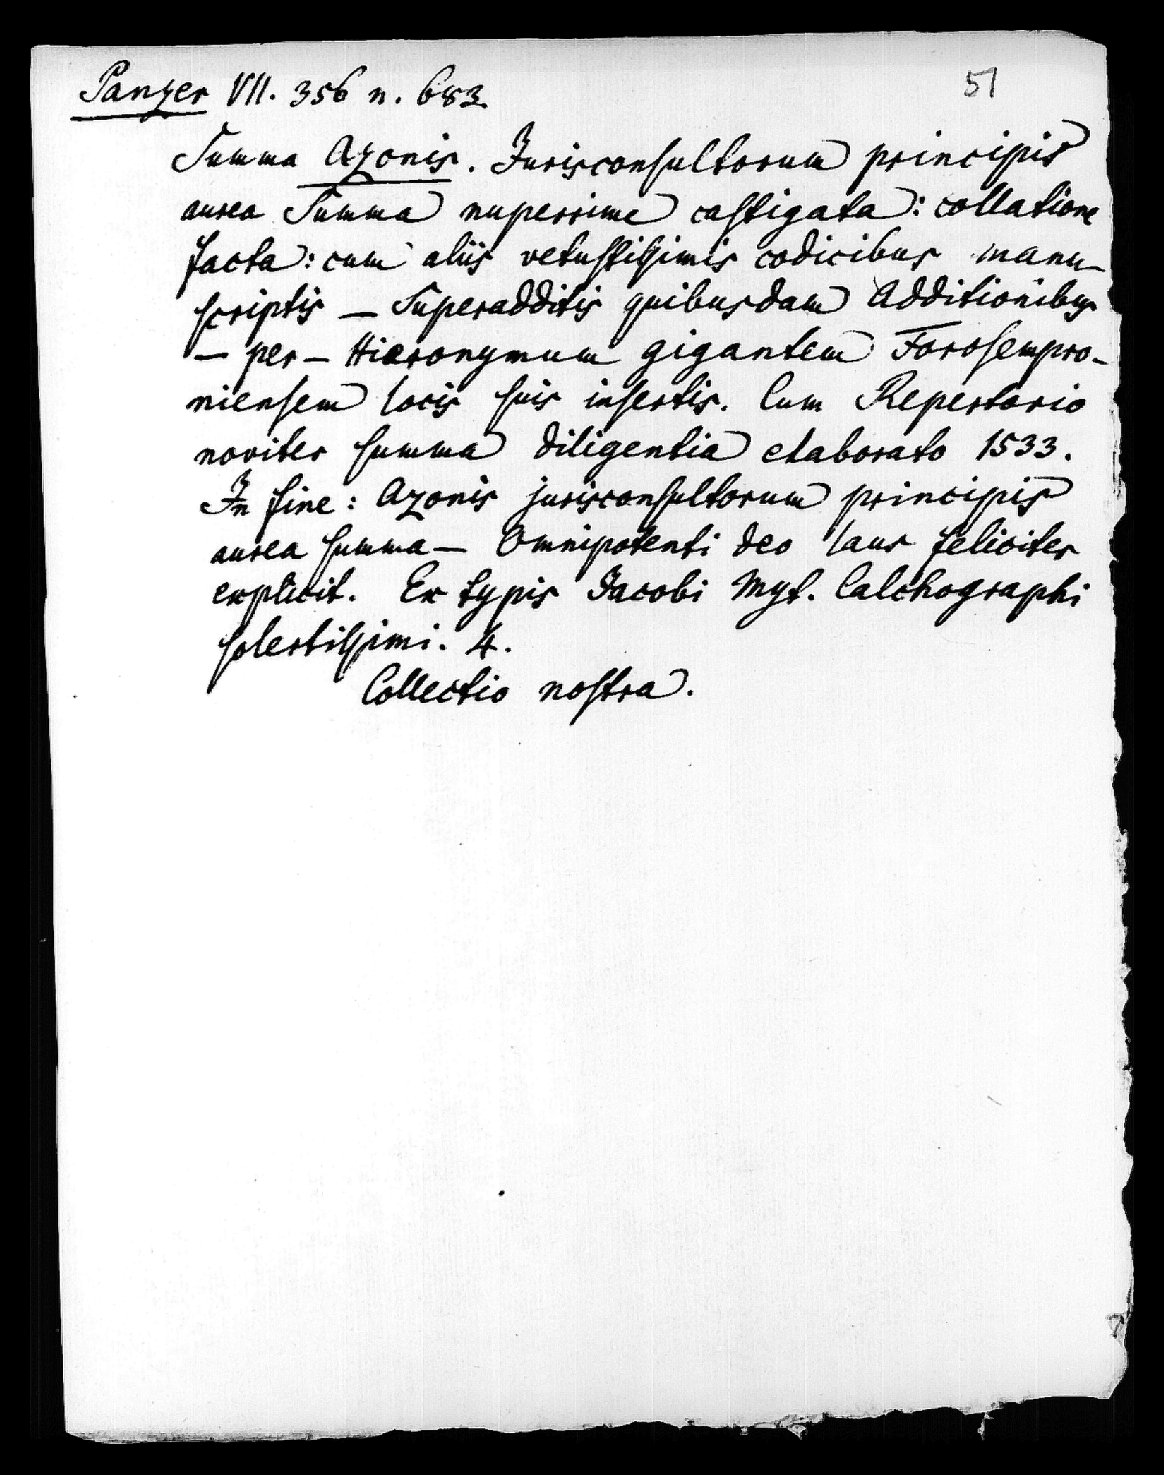 Panzer VII. 356 n. 683.
51
Summa Azonis. Jurisconsultorum principis
aurea Summa nuperrime castigata: collatione
facta: cum aliis vetustissimis codicibus manu-
scriptis — Superadditis quibusdam Additionibus
— per — Hieronymum gigantem Forosempro-
niensem locis suis insertis. Cum Repertorio
noviter summa diligentia elaborato 1533.
In fine: Azonis jurisconsultorum principis
aurea summa — Omnipotenti deo laus feliciter
explicit. Ex typis Jacobi Myt. Calchographi
solertissimi. 4.
Collectio nostra.